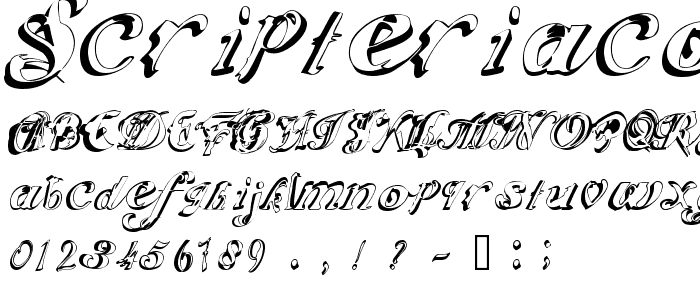 Scripteriaco
ABCDEFGHIJKLMNOPQRA
abcdefghijklmnopqrstuvwxy
0123456789 . , ! ? - [] : ;